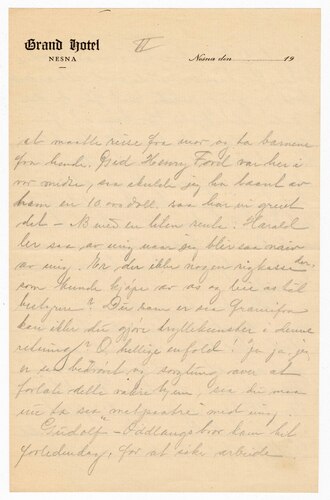 Grand Hotel
NESNA
II
Nesna den 19
at maatte reise fra mor og ta barnene
fra hende. Gid Henry Ford var her i
vor midte, saa skulde jeg ha laant av
ham en 10 000 doll. saa har vi greiet
det – NB med en liten rente. Harald
ler saa av mig naar jeg blir saa naiv
av mig. Er der ikke nogen rigkasse der,
som kunde hjelpe av os og leie os til
bestyrer? Du som er saa
kan ikke du gjøre tryllekunster i denne
retning? O, hellige enfold! Ja ja, jeg
er saa bedrøvet og sorgtung over at
forlate dette vakre hjem, saa du maa
nu ta saa "metpaatre" med mig.
Gudolf – Oddlaugs bror kom hit
forledendag, for at søke arbeide